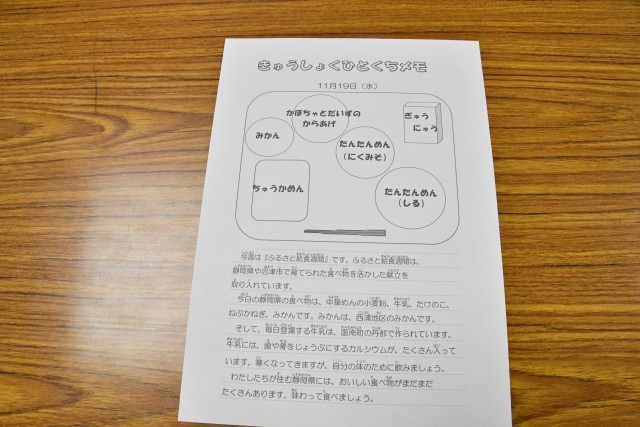 きゅうしょくひとくちメモ
11月19日（水）
かぼちゃとだいずの
からあげ
ぎゅう
にゅう
みかん
たんたんめん
（にくみそ）
ちゅうかめん
たんたんめん
（しる）
今週は『ふるさと給食週間』です。ふるさと給食週間は、
静岡県や沼津市で育てられた食べ物を活かした献立を
取り入れています。
今日の静岡県の食べ物は、中華めんの小麦粉、牛乳、たけのこ、
ねぶかねぎ、みかんです。みかんは、西浦地区のみかんです。
そして、毎日登場する牛乳は、函南町の丹那で作られています。
牛乳には、歯や骨をじょうぶにするカルシウムが、たくさん入って
います。寒くなってきますが、自分の体のために飲みましょう。
わたしたちが住む静岡県には、おいしい食べ物がまだまだ
たくさんあります。味わって食べましょう。